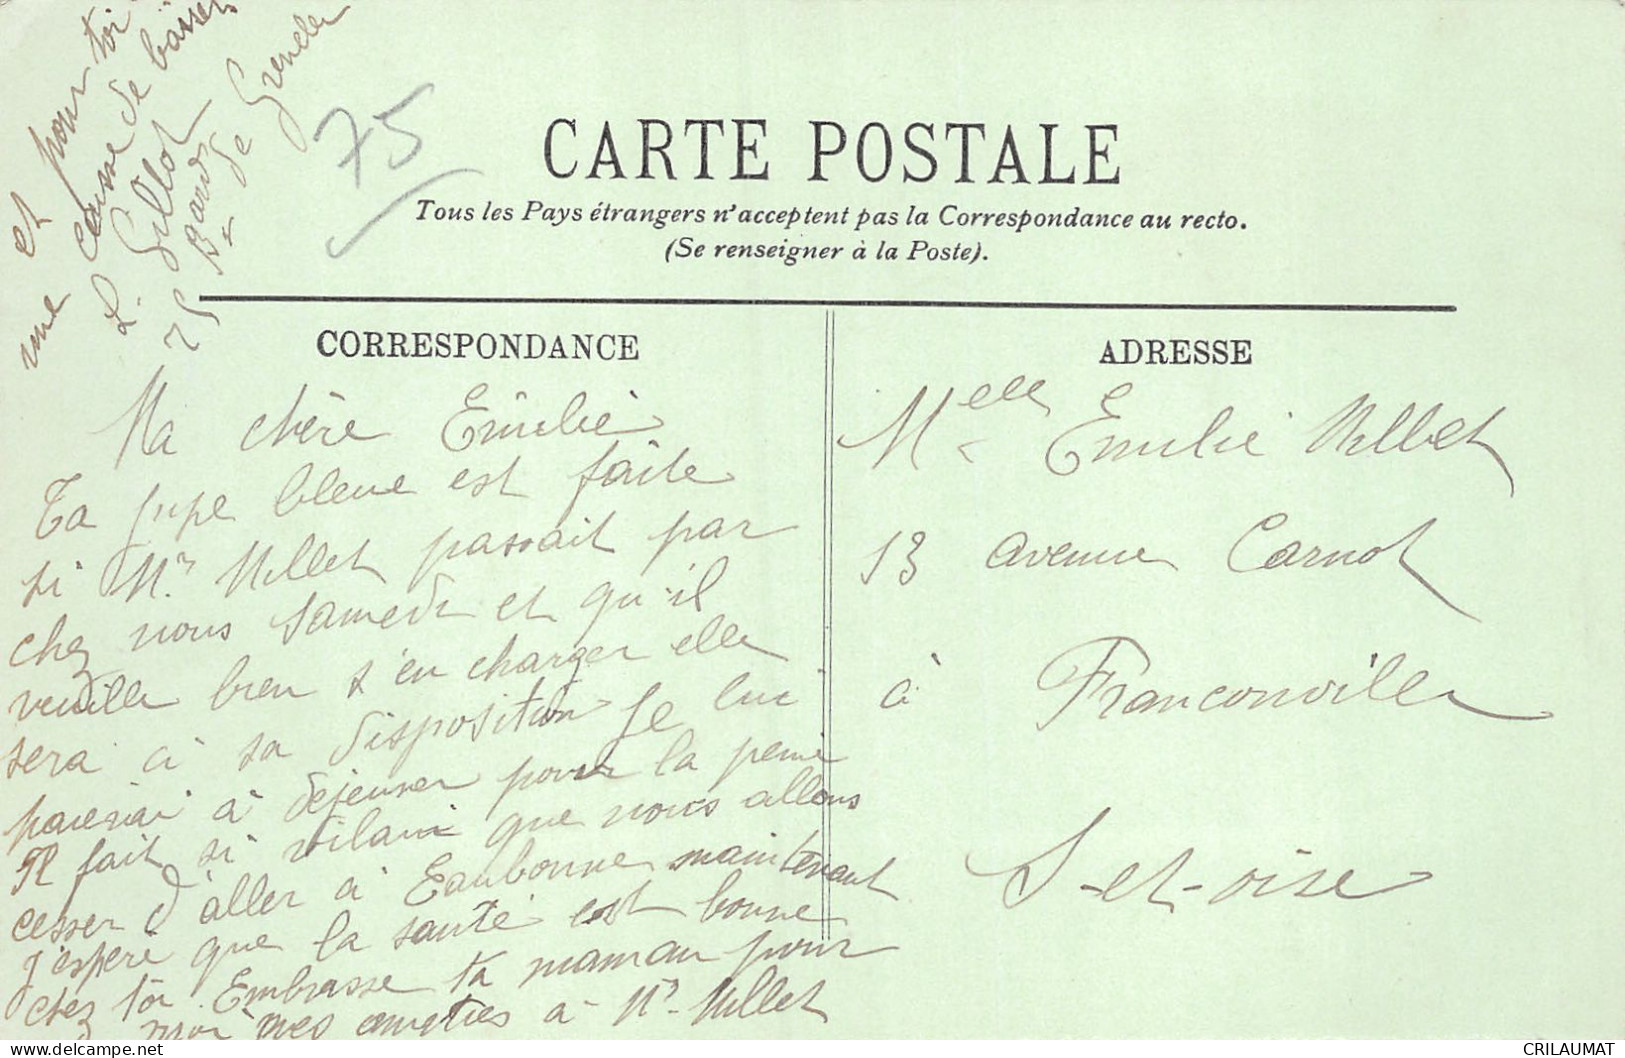 75
CARTE POSTALE
Tous les Pays étrangers n'acceptent pas la Correspondance au recto.
(Se renseigner à la Poste).
CORRESPONDANCE
Ma chère Emilie
Ta jupe bleue est faite
si Mr Millet passait par
chez nous samedi et qu'il
veuille bien s'en charger elle
sera à sa disposition Je lui
paierai à déjeuner pour la peine
Il fait si vilain que nous allons
cesser d'aller à Eaubonne maintenant
J'espère que la santé est bonne
chez toi. Embrasse ta maman pour
moi mes amitiés à Mr Millet
et pour toi
une caisse de baisers
L. Gillot
25 Bard de Grenelle
ADRESSE
Melle Emilie Millet
13 avenue Carnot
à Franconville
S-et-oise
CRILAUMAT